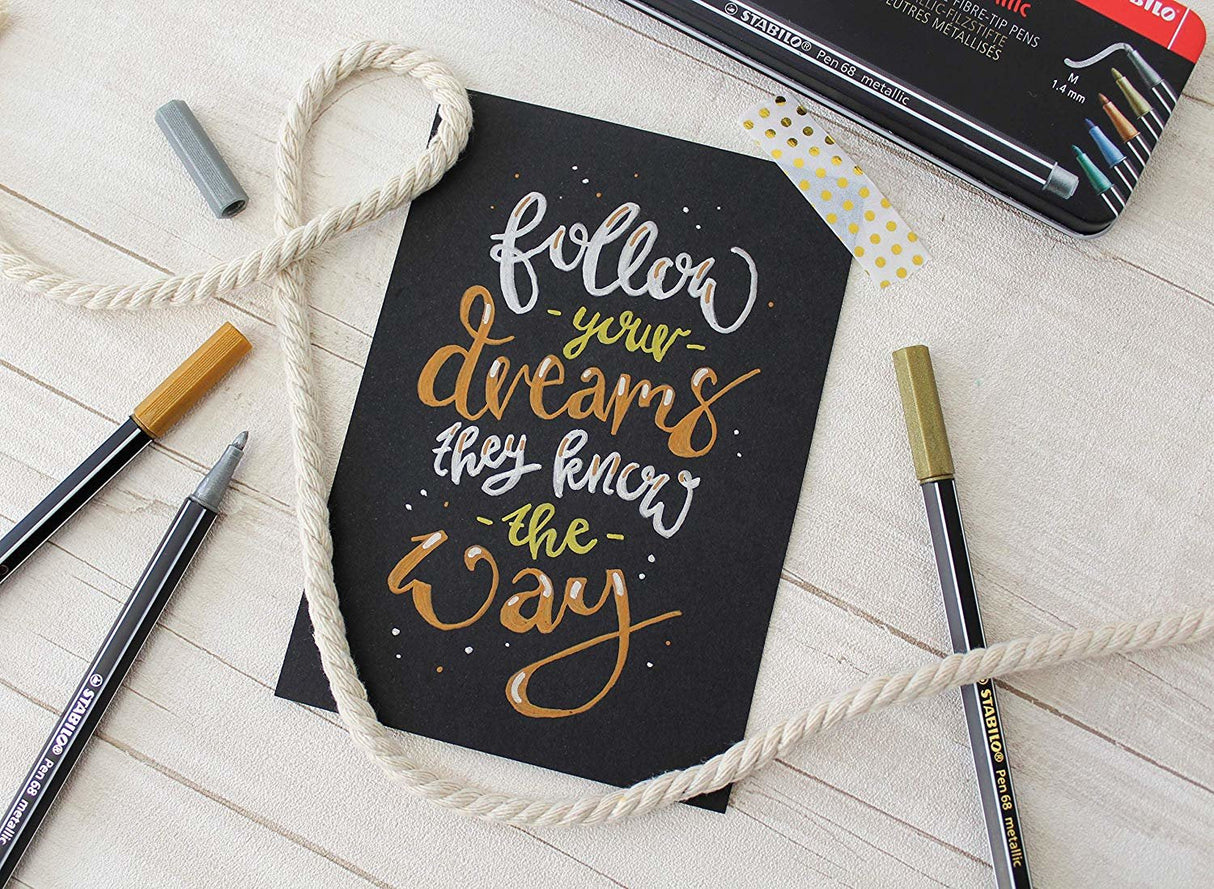 follow
- your -
dreams
they know
- the -
way
FIBRE-TIP PENS
FILZSTIFTE
FEUTRES MÉTALLISÉS
STABILO® Pen 68 metallic
M
1.4 mm
STABILO® Pen 68 metallic
STABILO® Pen 68 metallic